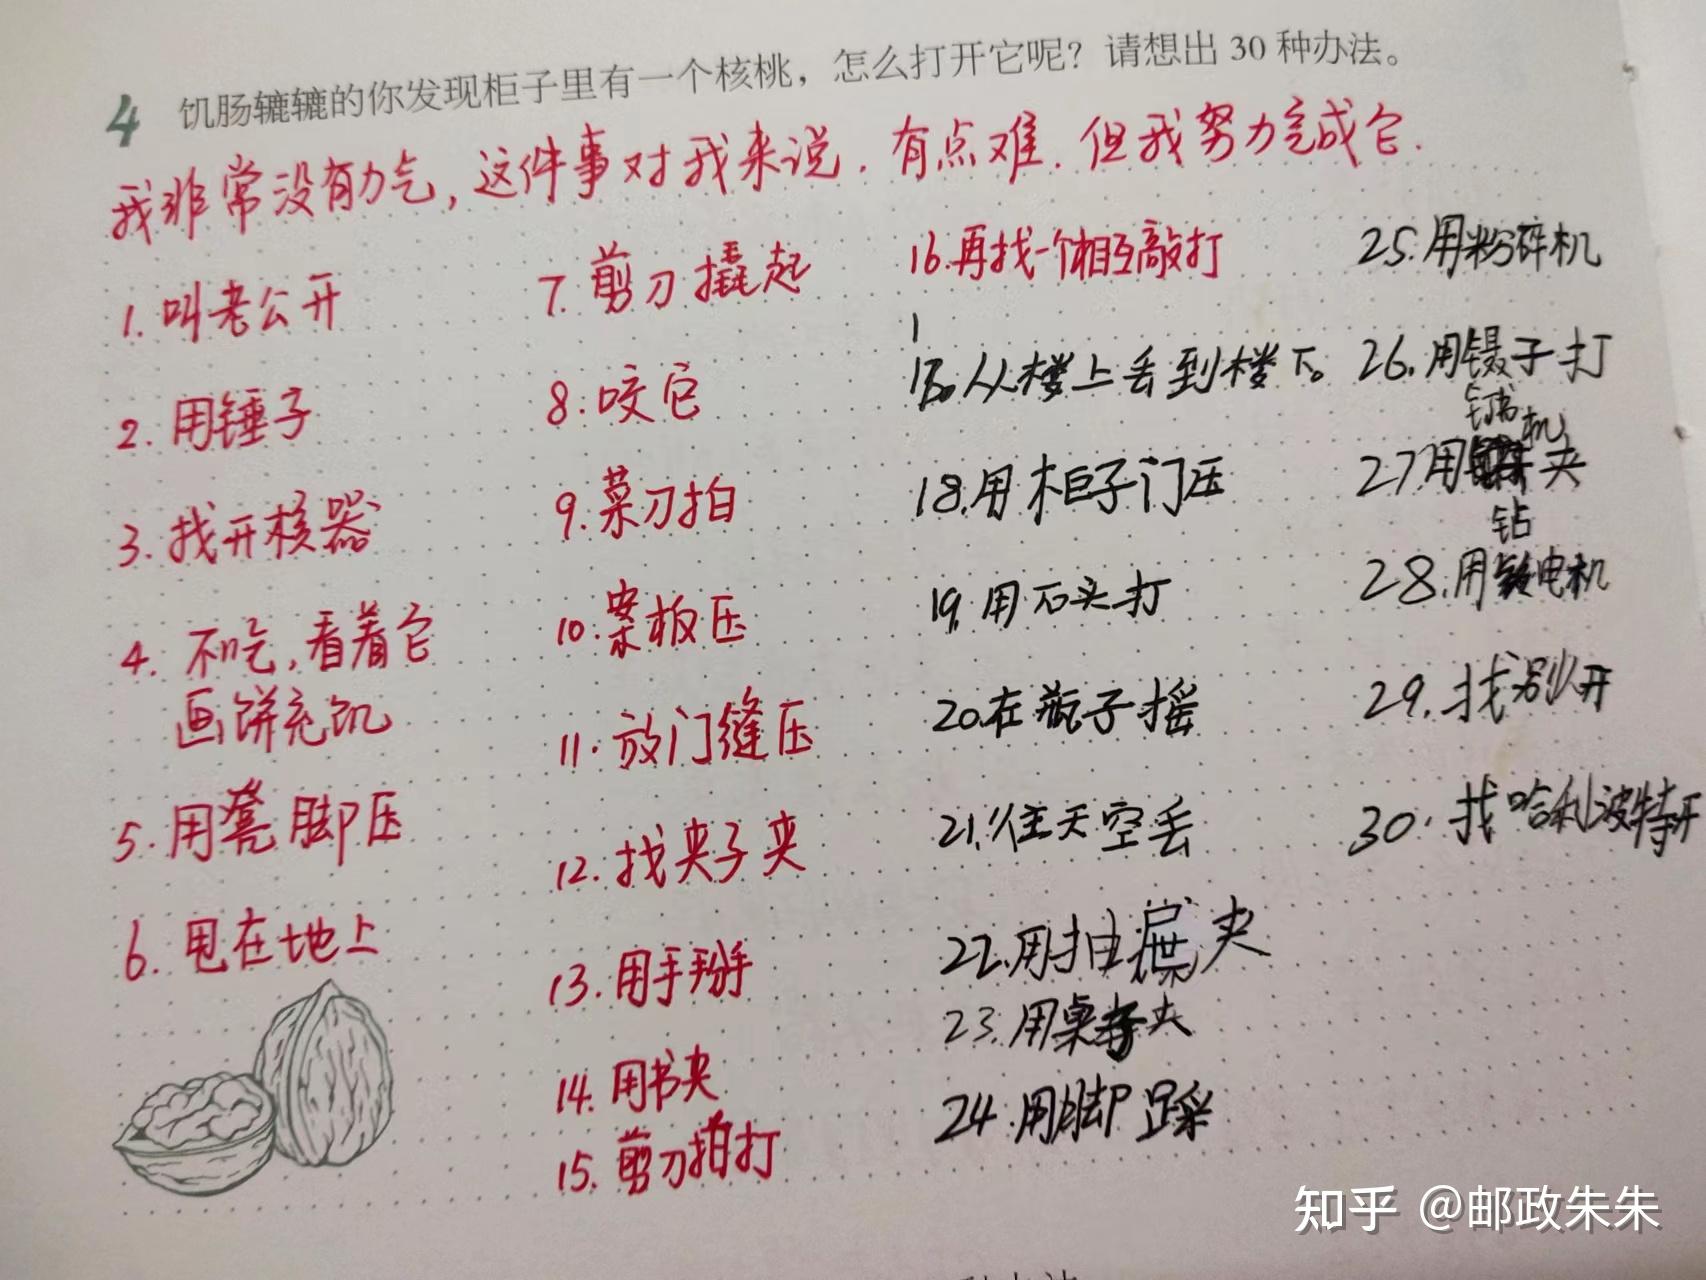 4 饥肠辘辘的你发现柜子里有一个核桃，怎么打开它呢？请想出 30 种办法。
我非常没有力气，这件事对我来说．有点难．但我努力完成它．
1. 叫老公开
2. 用锤子
3. 找开核器
4. 不吃，看着它
画饼充饥
5. 用凳脚压
6. 甩在地上
7. 剪刀撬起
8. 咬它
9. 菜刀拍
10. 案板压
11. 放门缝压
12. 找夹子夹
13. 用手掰
14. 用书夹
15. 剪刀拍打
16. 再找一个相互敲打
17. 从楼上丢到楼下。
18. 用柜子门压
19. 用石头打
20. 在瓶子摇
21. 往天空丢
22. 用抽屉夹
23. 用桌子夹
24. 用脚踩
25. 用粉碎机
26. 用镊子打
27 用钉书机夹
28. 用钻电机
29. 找别人开
30. 找哈利波特开
知乎 @邮政朱朱